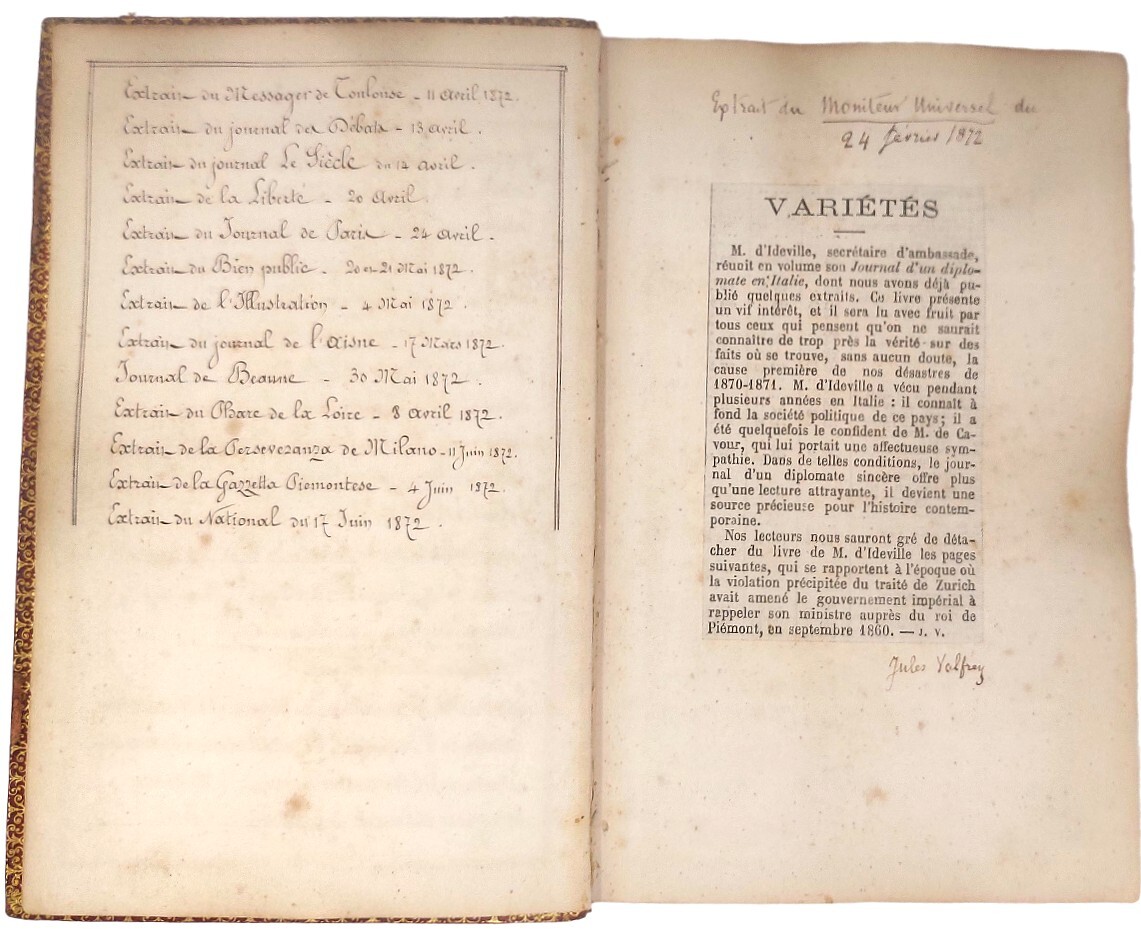 Extrait du Messager de Toulouse - 11 Avril 1872.
Extrait du journal des Débats - 13 avril.
Extrait du journal Le Siècle du 14 avril.
Extrait de la Liberté - 20 Avril.
Extrait du Journal de Paris - 24 Avril.
Extrait du Bien public - 20 et 21 Mai 1872.
Extrait de l'Illustration - 4 Mai 1872.
Extrait du journal de l'aisne - 17 Mars 1872.
Journal de Beaune - 30 Mai 1872.
Extrait du Phare de la Loire - 8 avril 1872.
Extrait de la Perseveranza de Milano - 11 Juin 1872.
Extrait de la Gazzetta Piemontese - 4 Juin 1872.
Extrait du National du 17 Juin 1872.
Extrait du Moniteur Universel du
24 février 1872
VARIÉTÉS
M. d'Ideville, secrétaire d'ambassade,
réunit en volume son Journal d'un diplo-
mate en Italie, dont nous avons déjà pu-
blié quelques extraits. Ce livre présente
un vif intérêt, et il sera lu avec fruit par
tous ceux qui pensent qu'on ne saurait
connaître de trop près la vérité sur des
faits où se trouve, sans aucun doute, la
cause première de nos désastres de
1870-1871. M. d'Ideville a vécu pendant
plusieurs années en Italie : il connaît à
fond la société politique de ce pays; il a
été quelquefois le confident de M. de Ca-
vour, qui lui portait une affectueuse sym-
pathie. Dans de telles conditions, le jour-
nal d'un diplomate sincère offre plus
qu'une lecture attrayante, il devient une
source précieuse pour l'histoire contem-
poraine.
Nos lecteurs nous sauront gré de déta-
cher du livre de M. d'Ideville les pages
suivantes, qui se rapportent à l'époque où
la violation précipitée du traité de Zurich
avait amené le gouvernement impérial à
rappeler son ministre auprès du roi de
Piémont, en septembre 1860. — J. V.
Jules Valfrey